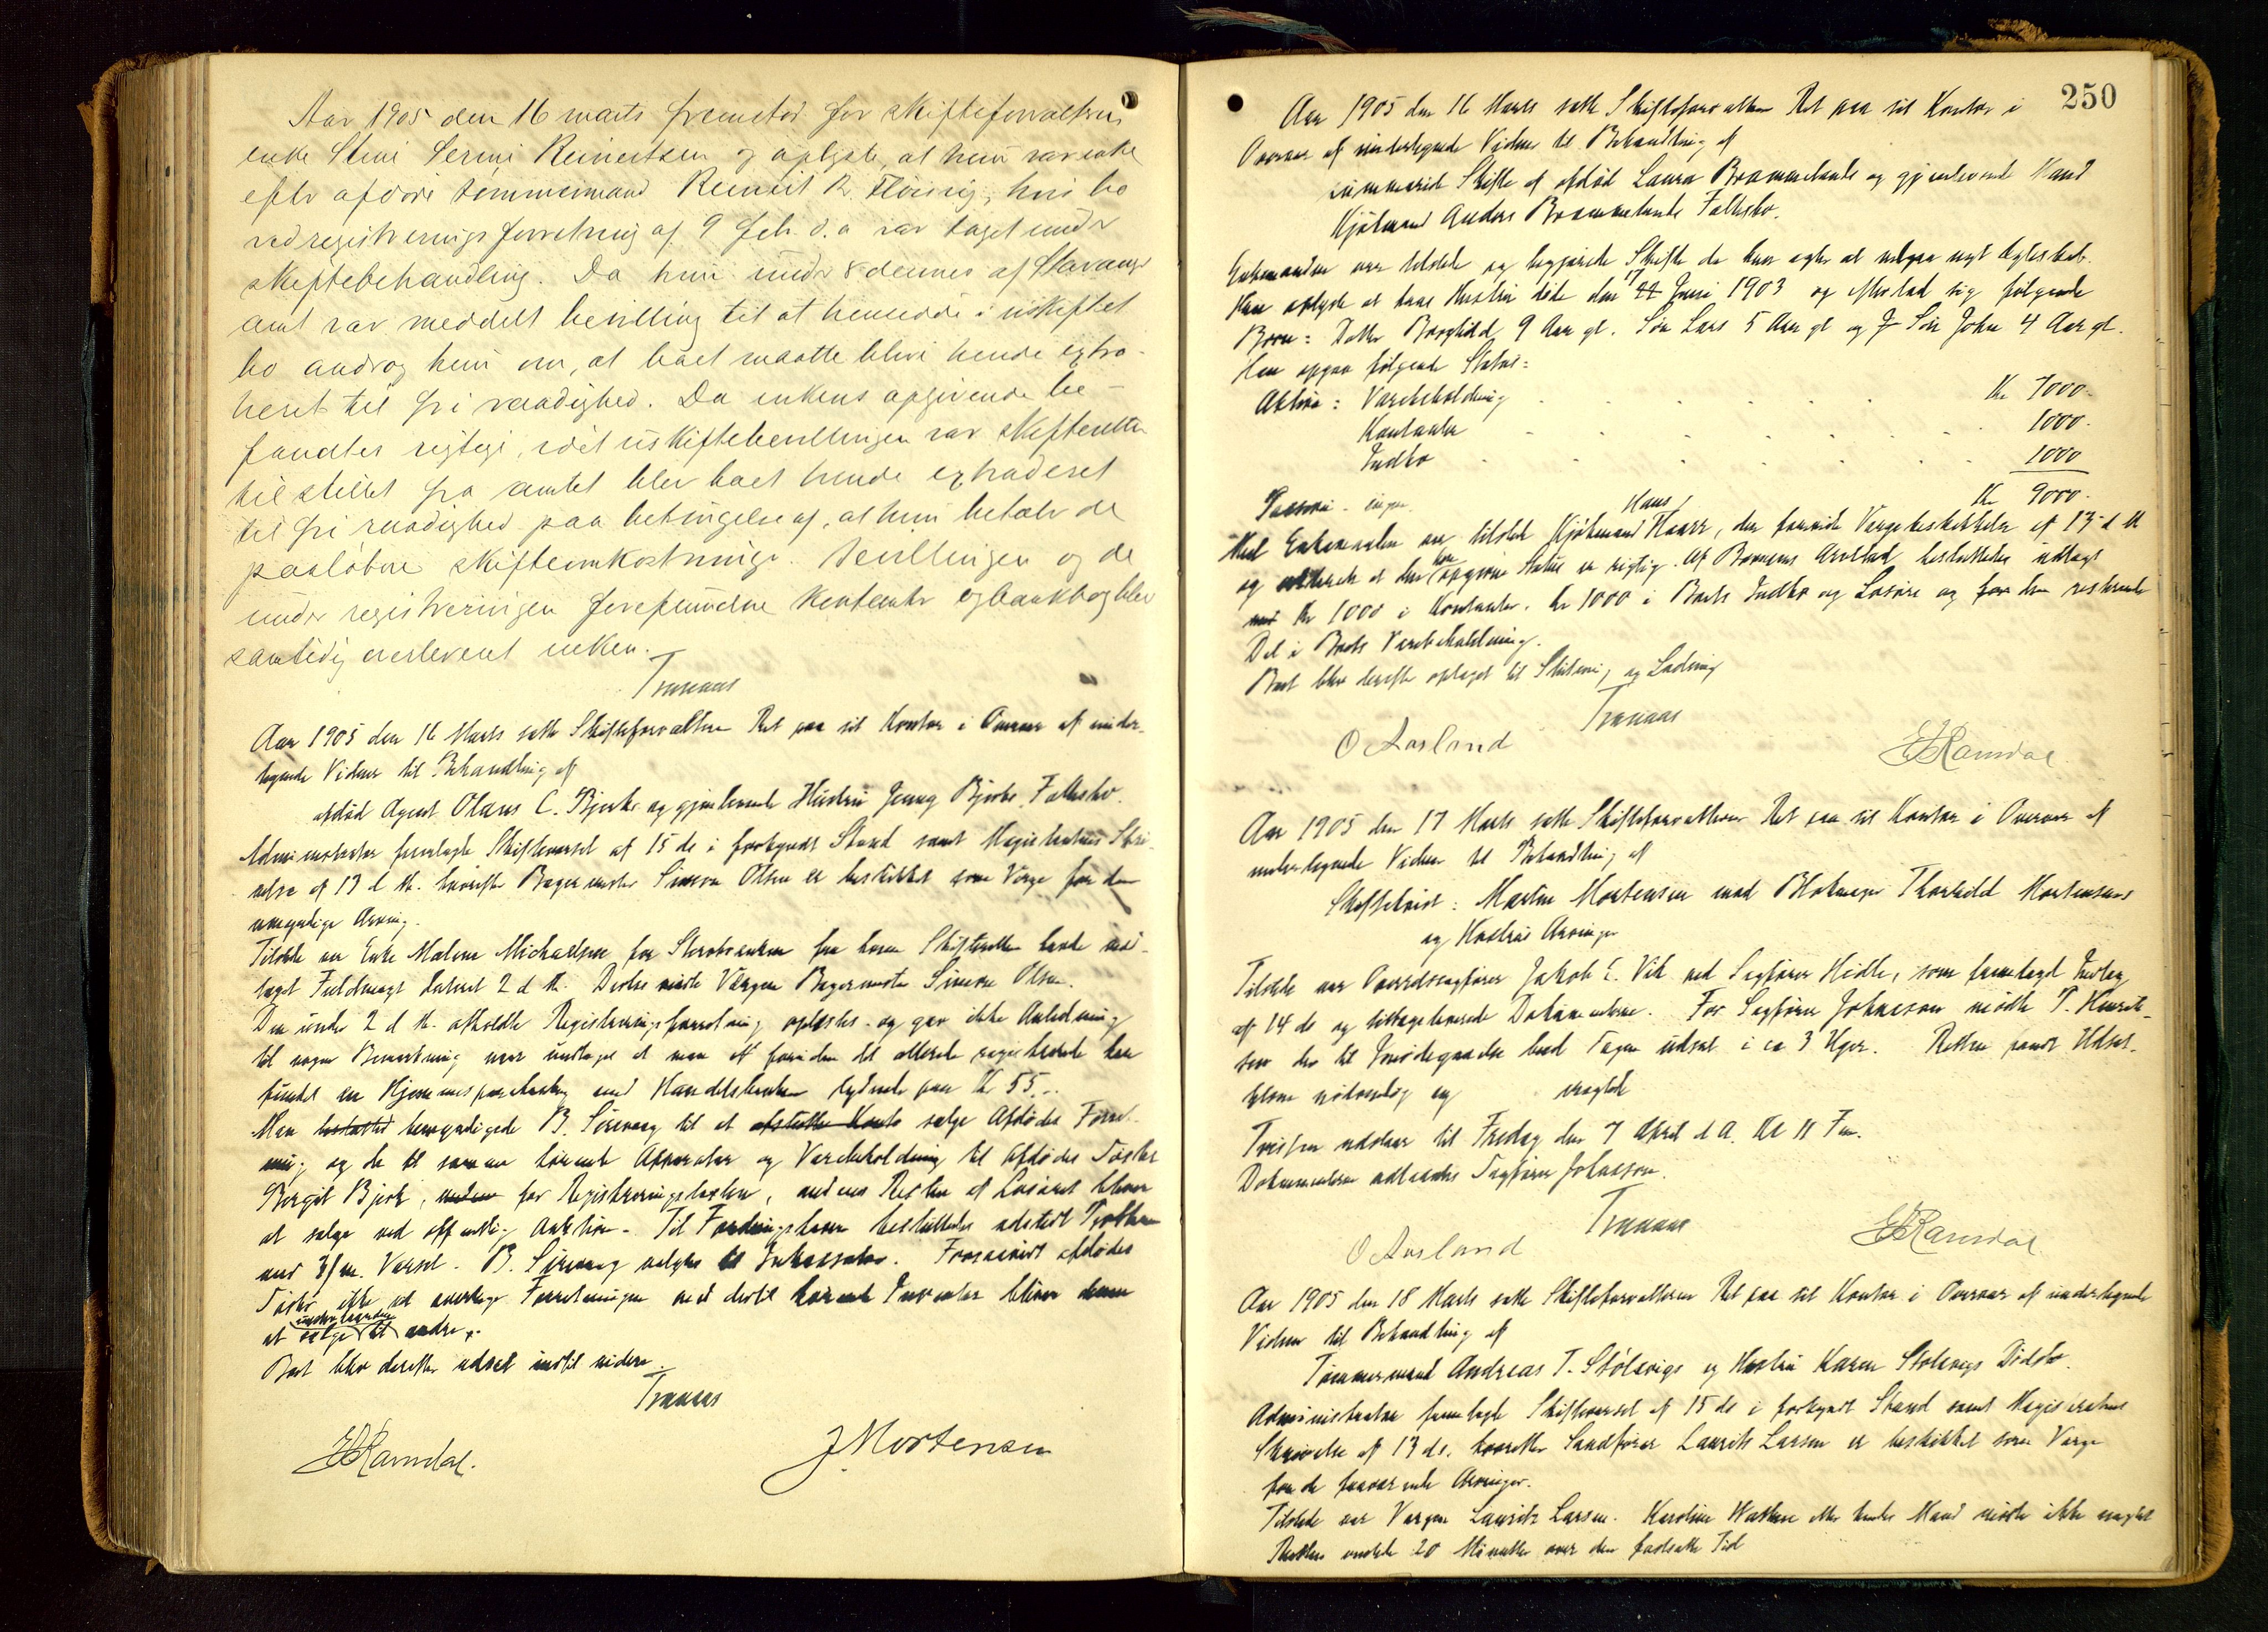 Aar 1905 den 16 marts fremstod for skifteforvalteren
enke Stine Serine Reinertsen og oplyste, at hun var enke
efter afdøde tømmermand Reinert R. Fløisvig, hvis bo
ved registreringsforretning af 9 feb. d.a var taget under
skiftebehandling. Da hun under 8 dennes af Stavanger
amt var meddelt bevilling til at hensidde i uskiftet
bo androg hun om, at boet maatte blive hende extra-
heret til fri raadighed. Da enkens opgivende be-
fandtes rigtige, idet uskiftebevillingen var skifteretten
tilstillet fra amtet blev boet hende extraderet
til fri raadighed paa betingelse af, at hun betaler de
paaløbne skifteomkostninger. Bevillingen og de
under registreringen forefundne kontanter og bankbog blev
samtidig overleveret enken.
Tranaas
Aar 1905 den 16 Marts satte Skifteforvalteren Ret paa sit Kontor i Overvær af under-
tegnede Vidner til Behandling af
afdød Agent Olaus C. Bjerks og gjenlevende Hustru Jenny Bjerks Fællesbo.
Administrator fremlagte Skiftevarsel af 15 ds i forkyndt Stand samt Magistratens Skri-
velse af 13 d M. hvorefter Bagermester Simon Olsen er beskikket som Værge for den
umyndige Arving.
Tilstede var Enke Malene Michaelsen for Skrobranken fra hvem Skifteretten havde mod-
taget Fuldmagt dateret 2 d M. Desuden mødte Værgen Bagermester Simon Olsen.
Den under 2 d M. afholdte Registreringsforretning oplæstes og gav ikke Anledning
til nogen Bemærkning naar undtages at man foruden det allerede registrerede har
fundet en Hjemmesparebankbog med Handelsbanken lydende paa Kr 55.-
Man besluttet bemyndigede B. Sirevaag til at afslutte Konto sælge Afdødes Forret-
ning og de til samme hørende Apparater og Varebeholdning til Afdødes Søster
Borgit Bjerk, for Registreringstaxten, medens Resten af Løsøret bliver
at sælge ved offentlig Auktion. Til Fordringshavere besluttedes udstedt Proklama
med 3/m. Varsel. B. Sirevaag valgtes til Inkassator. Forsaavidt afdødes
Søster ikke vil overtage Forretningen med dertil hørende Inventar bliver denne
at sælge underhaanden til andre.
Boet blev derefter udsat indtil videre.
Tranaas
E Ramdal.
J Mortensen
250
Aar 1905 den 16 Marts satte Skifteforvalteren Ret paa sit Kontor i
Overvær af undertegnede Vidner til Behandling af
summarisk Skifte af afdød Laura Brommelands og gjenlevende Mand
Kjøbmand Anders Brommelands Fællesbo.
Enkemanden var tilstede og begjærede Skifte da han agter at indgaa nyt Ægteskab.
Han oplyste at hans Hustru døde den 17 Juni 1903 og efterlod sig følgende
Børn: Datter Borghild 9 Aar gl. Søn Lars 5 Aar gl og Søn John 4 Aar gl.
Han opgav følgende Status:
Aktiva: Varebeholdning Kr 7000.-
Kontanter 1000.-
Indbo 1000
Passiva - ingen. Kr 9000.-
Med Enkemanden var tilstede Kjøbmand Hans Haarr, der foreviste Værgebeskikkelse af 13 d M
og attesterede at den opgivne Status er rigtig. Af Børnenes Arvelod besluttedes udlagt
Kr 1000 i Kontanter. Kr 1000 i Boets Indbo og Løsøre og for den resterende
Del i Boets Varebeholdning.
Boet blev derefter optaget til Slutning og Lodning
Tranaas
O Aasland
E Ramdal.
Aar 1905 den 17 Marts satte Skifteforvalteren Ret paa sit Kontor i Overvær af
undertegnede Vidner til Behandling af
Skiftetvist: Martin Mortensen mod Blokmager Thorkild Mortensens
og Hustrus Arvinger
Tilstede var Overretssagfører Jakob E. Vik ved Sagfører Hidle, som fremlagde Indlæg
af 14 ds og tilbageleverede Dokumenterne. For Sagfører Johnsson mødte T. Henrik-
sen der til Imødegaaelse bad Sagen udsat i ca 3 Uger. Retten fandt Udsæt-
telsen nødvendig og eragtede
Tvisten udstaar til Fredag den 7 April d A. Kl 11 Fm.
Dokumenterne udlaantes Sagfører Johnsson.
Tranaas
O Aasland
E Ramdal
Aar 1905 den 18 Marts satte Skifteforvalteren Ret paa sit Kontor i Overvær af undertegnede
Vidner til Behandling af
Tømmermand Andreas T. Stølsvigs og Hustru Karen Stølsvigs Dødsbo.
Administrator fremlagte Skiftevarsel af 15 ds i forkyndt Stand samt Magistratens
Skrivelse af 13 ds. hvorefter Sandfører Laurits Larsen er beskikket som Værge
for de fraværende Arvinger.
Tilstede var Værgen Laurits Larsen. Karoline Watne eller hendes Mand mødte ikke uagtet
Retten ventede 20 Minutter over den fastsatte Tid